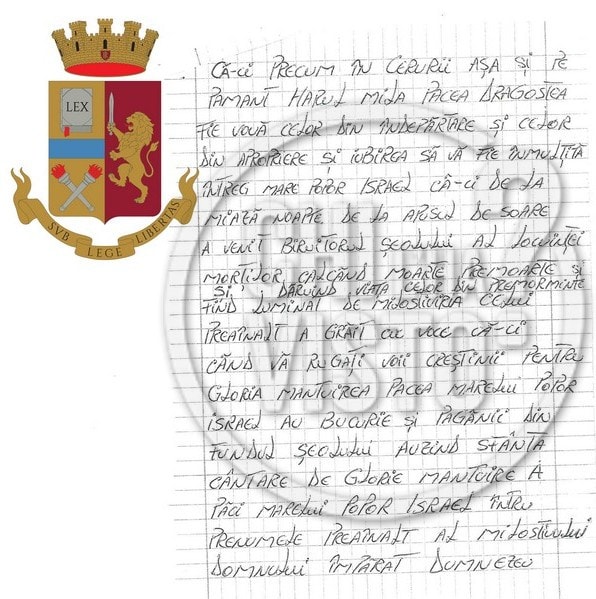 LEX
SVB LEGE LIBERTAS
CĂ-CI PRECUM ÎN CERURII AȘA ȘI PE
PAMANT HARUL MILA PACEA DRAGOSTEA
FIE VOUĂ CELOR DIN ÎNDEPĂRTARE ȘI CELOR
DIN APROPIERE ȘI IUBIREA SĂ VĂ FIE ÎNMULȚITĂ
ÎNTREG MARE POPOR ISRAEL CĂ-CI DE LA
MIAZĂ NOAPTE DE LA APUSUL DE SOARE
A VENIT BIRUITORUL ȘEOLULUI AL LOCUINȚEI
MORȚILOR CALCÂND MOARTE PREMOARTE ȘI
ȘI DĂRUIND VIAȚA CELOR DIN PREMORMINTE
FIIND LUMINAT DE MILOSTIVIRIA CELUI
PREAÎNALT A GRĂIT CU VOCE CĂ-CI
CÂND VĂ RUGAȚI VOII CREȘTINII PENTRU
GLORIA MANTUIREA PACEA MARELUI POPOR
ISRAEL AU BUCURIE ȘI PAGÂNII DIN
FUNDUL ȘEOLULUI AUZIND SFÂNTA
CÂNTARE DE GLORIE MANTUIRE A
PĂCI MARELUI POPOR ISRAEL ÎNTRU
PRENUMELE PREAÎNALT AL MILOSTIVULUI
DOMNULUI ÎMPĂRAT DUMNEZEU